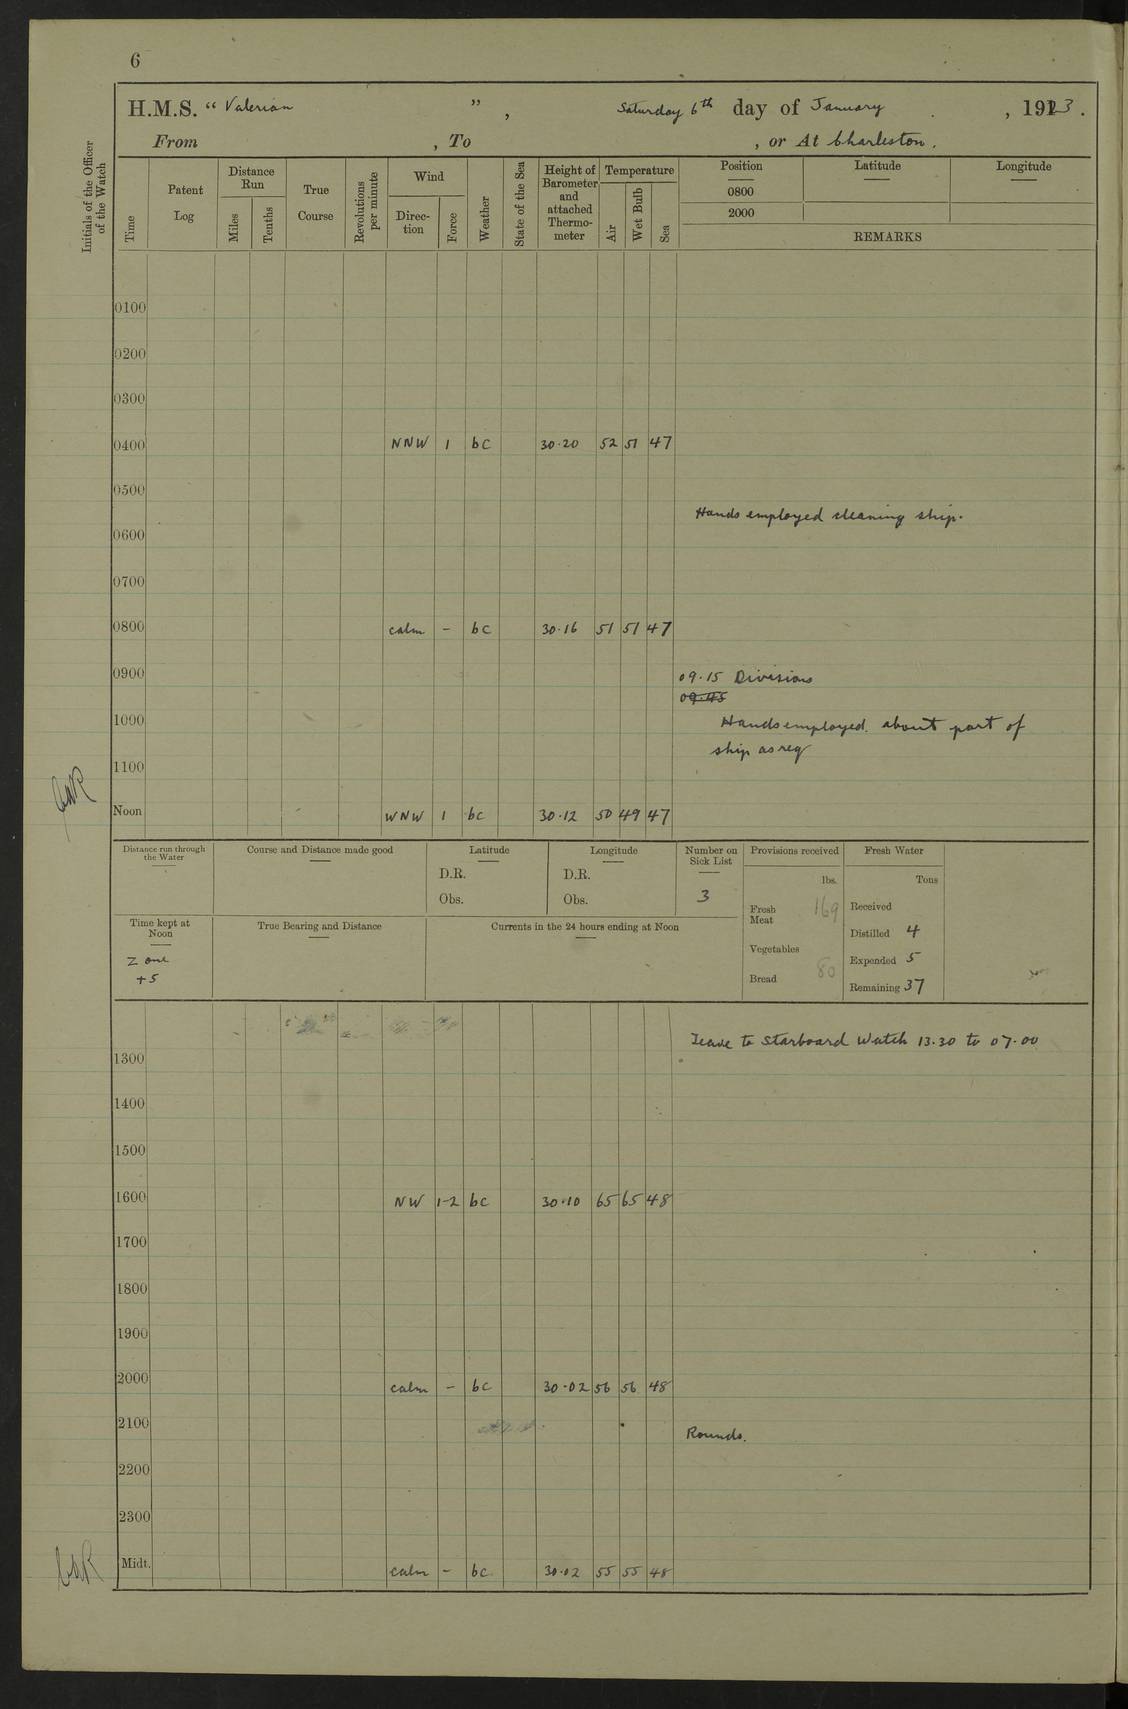 6
H.M.S. “ Valerian ” , Saturday 6th day of January , 1923 .
From , To , or At Charleston .
Initials of the Officer of the Watch
Time
Patent Log
Distance Run
Miles
Tenths
True Course
Revolutions per minute
Wind
Direc-tion
Force
Weather
State of the Sea
Height of Barometer and attached Thermo-meter
Temperature
Air
Wet Bulb
Sea
Position Latitude Longitude
0800
2000
REMARKS
0100
0200
0300
0400 NNW 1 bc 30.20 52 51 47
0500
Hands employed cleaning ship.
0600
0700
0800 calm - bc 30.16 51 51 47
0900
09.15 Divisions
09.45
1000
Hands employed about part of
ship as req
1100
Noon WNW 1 bc 30.12 50 49 47
Distance run through the Water
Course and Distance made good
Latitude
D.R.
Obs.
Longitude
D.R.
Obs.
Number on Sick List
3
Provisions received
lbs.
Fresh Meat 169
Vegetables
Bread 80
Fresh Water
Tons
Received
Distilled 4
Expended 5
Remaining 37
Time kept at Noon
Zone
+5
True Bearing and Distance
Currents in the 24 hours ending at Noon
Leave to Starboard Watch 13.30 to 07.00
1300
1400
1500
1600 NW 1-2 bc 30.10 65 65 48
1700
1800
1900
2000 calm - bc 30.02 56 56 48
2100
Rounds.
2200
2300
Midt. calm - bc 30.02 55 55 48